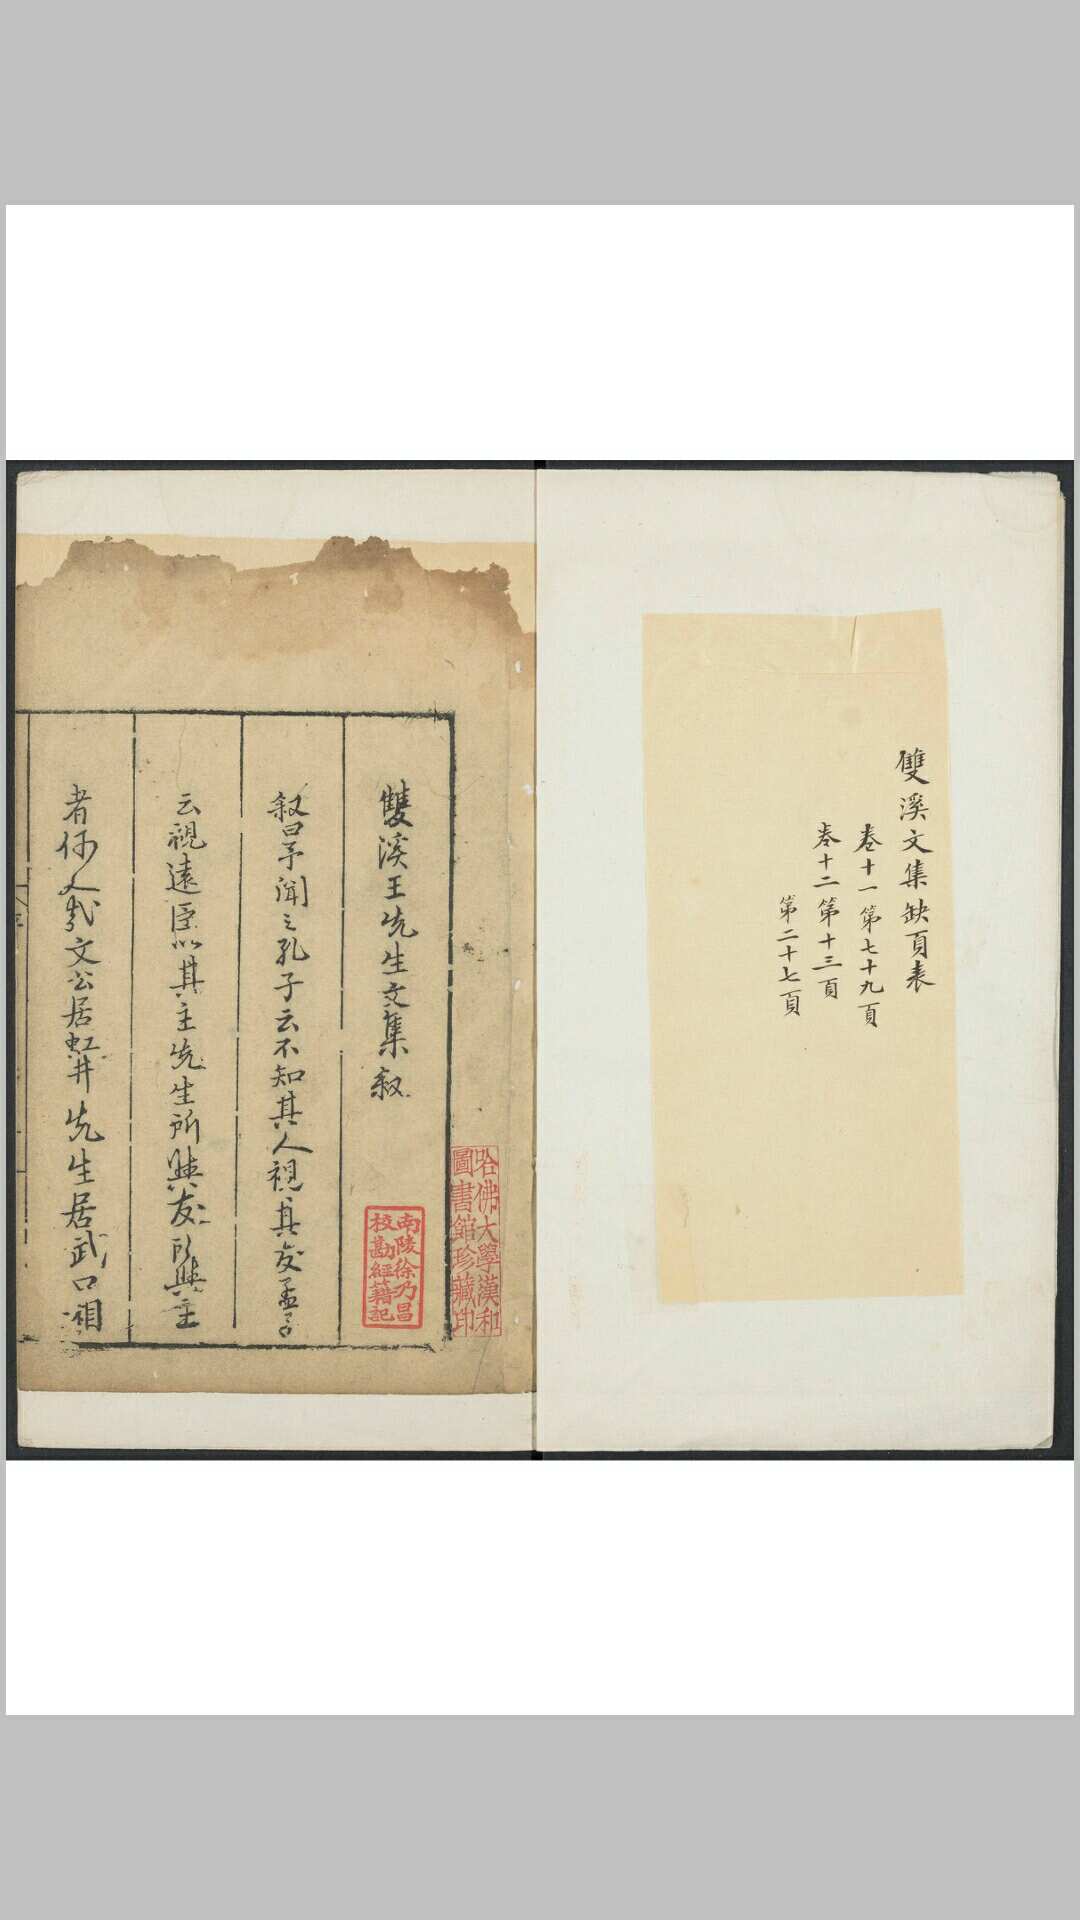 雙溪文集缺頁表
卷十一第七十九頁
卷十二第十三頁
第二十七頁
哈佛大學漢和
圖書館珍藏印
雙溪王先生文集叙
南陵徐乃昌
校勘經籍記
叙曰予聞之孔子云不知其人視其友孟子
云視遠臣以其主先生所與友所與主
者何人哉文公居虹井先生居武口湘